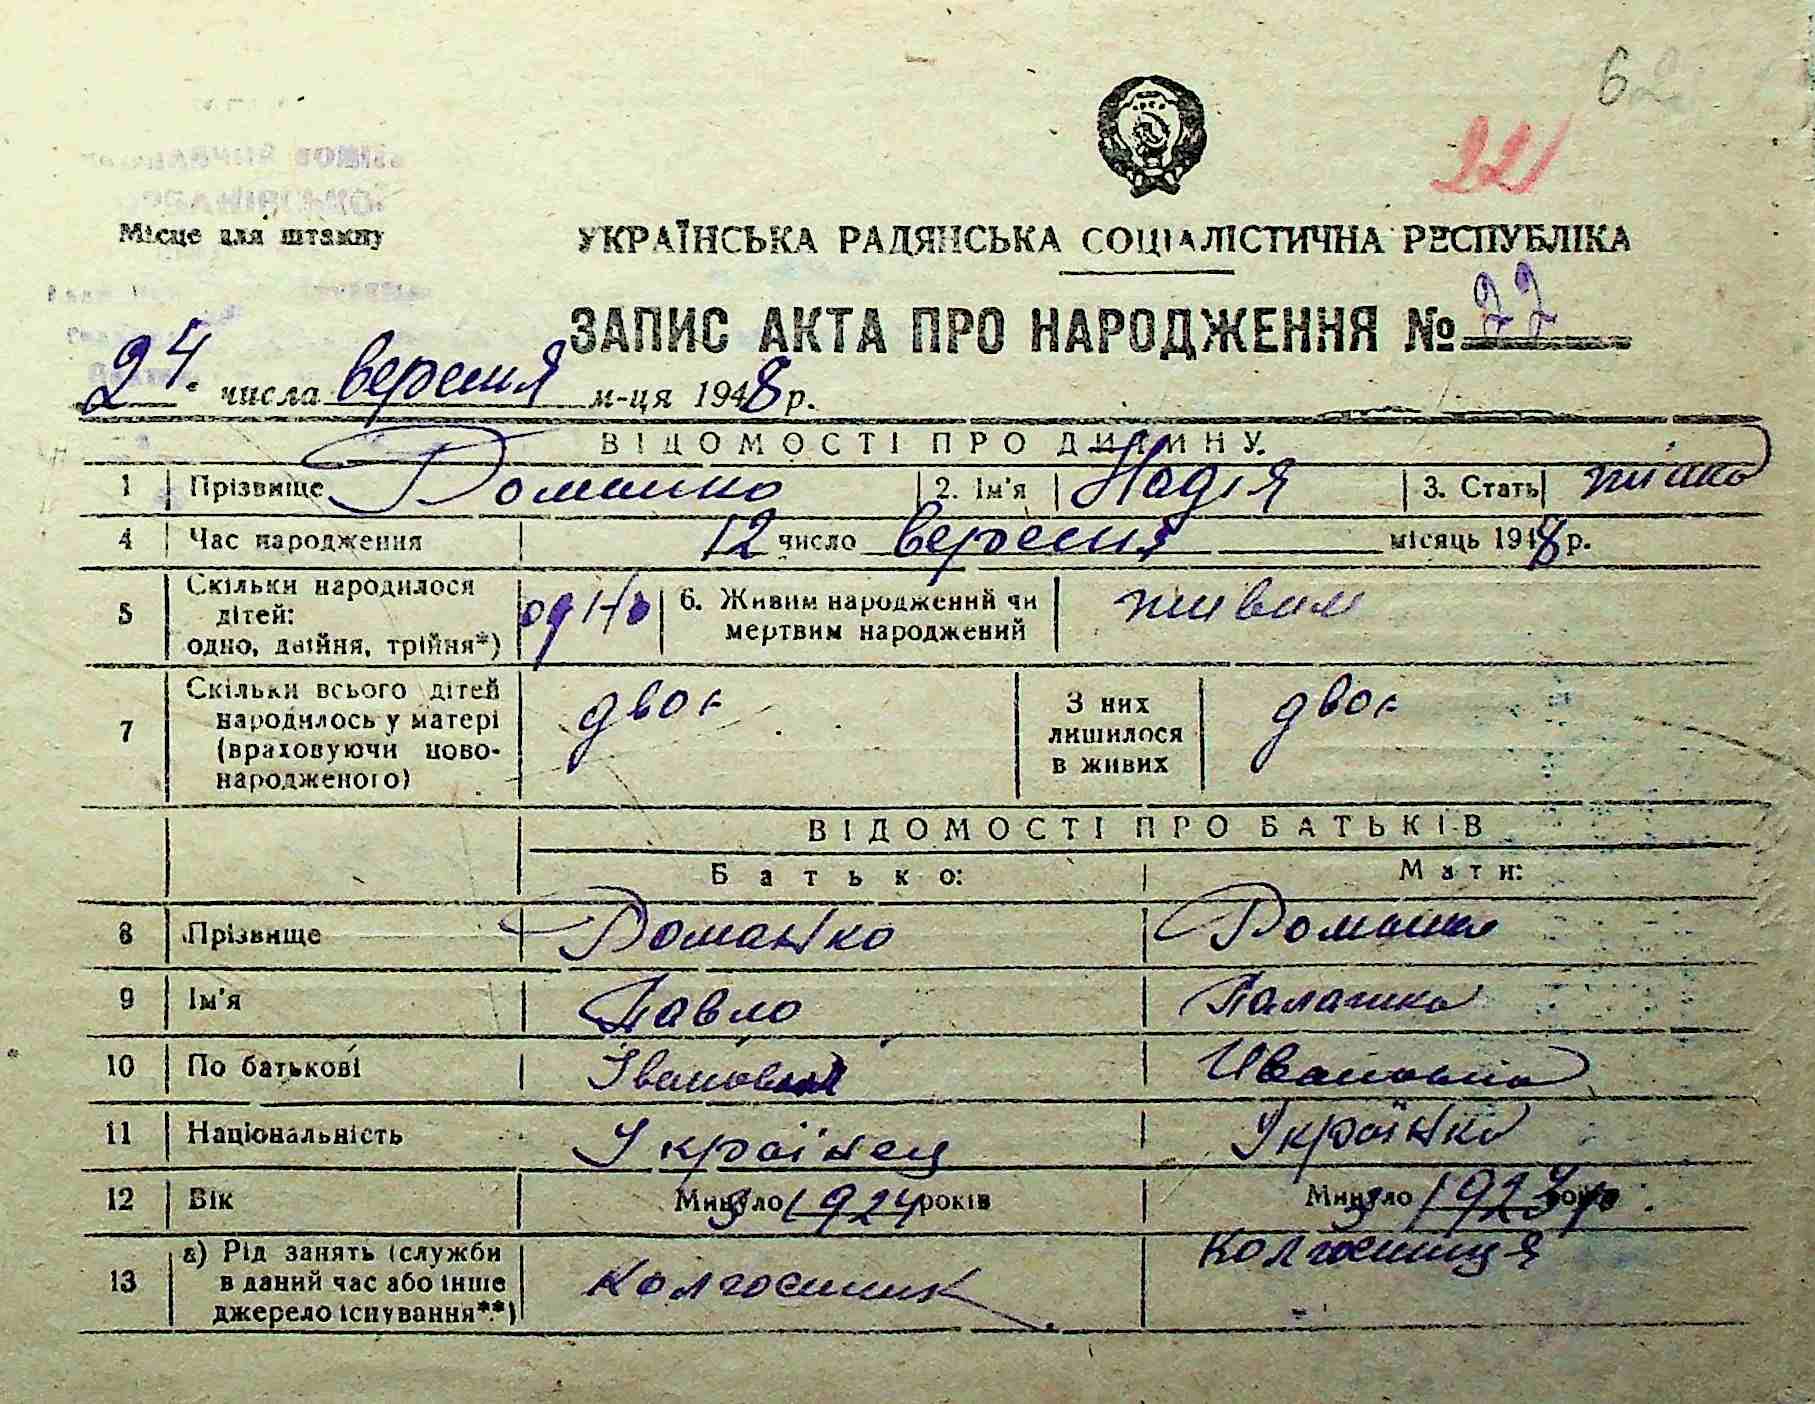 62
22
Місце для штампу
УКРАЇНСЬКА РАДЯНСЬКА СОЦІАЛІСТИЧНА РЕСПУБЛІКА
ЗАПИС АКТА ПРО НАРОДЖЕННЯ № 22
24. числа вересня м-ця 1948 р.
ВІДОМОСТІ ПРО ДИТИНУ.
1 Прізвище Романко 2. Ім'я Надія 3. Стать жіноча
4 Час народження 12 число вересня місяць 1948 р.
5 Скільки народилося дітей: одно, двійня, трійня*) одно 6. Живим народжений чи мертвим народжений живим
7 Скільки всього дітей народилось у матері (враховуючи ново-народженого) двоє З них лишилося в живих двоє
ВІДОМОСТІ ПРО БАТЬКІВ
Батько: Мати:
8 Прізвище Романко Романко
9 Ім'я Павло Палажка
10 По батькові Іванович Ивановна
11 Національність Українец Українка
12 Вік Минуло З 1924 років Минуло З 1923
13 а) Рід занять (служби в даний час або інше джерело існування**) Колгоспник Колгоспниця